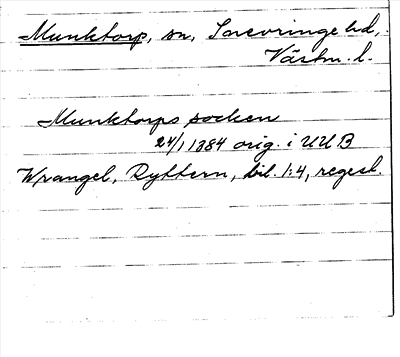 Munktorp, sn, Snevringe hd,
Västm. l.
Munktorps socken
24/1 1384 orig. i UUB
Wrangel, Ryttern, bil. 1:4, regest.